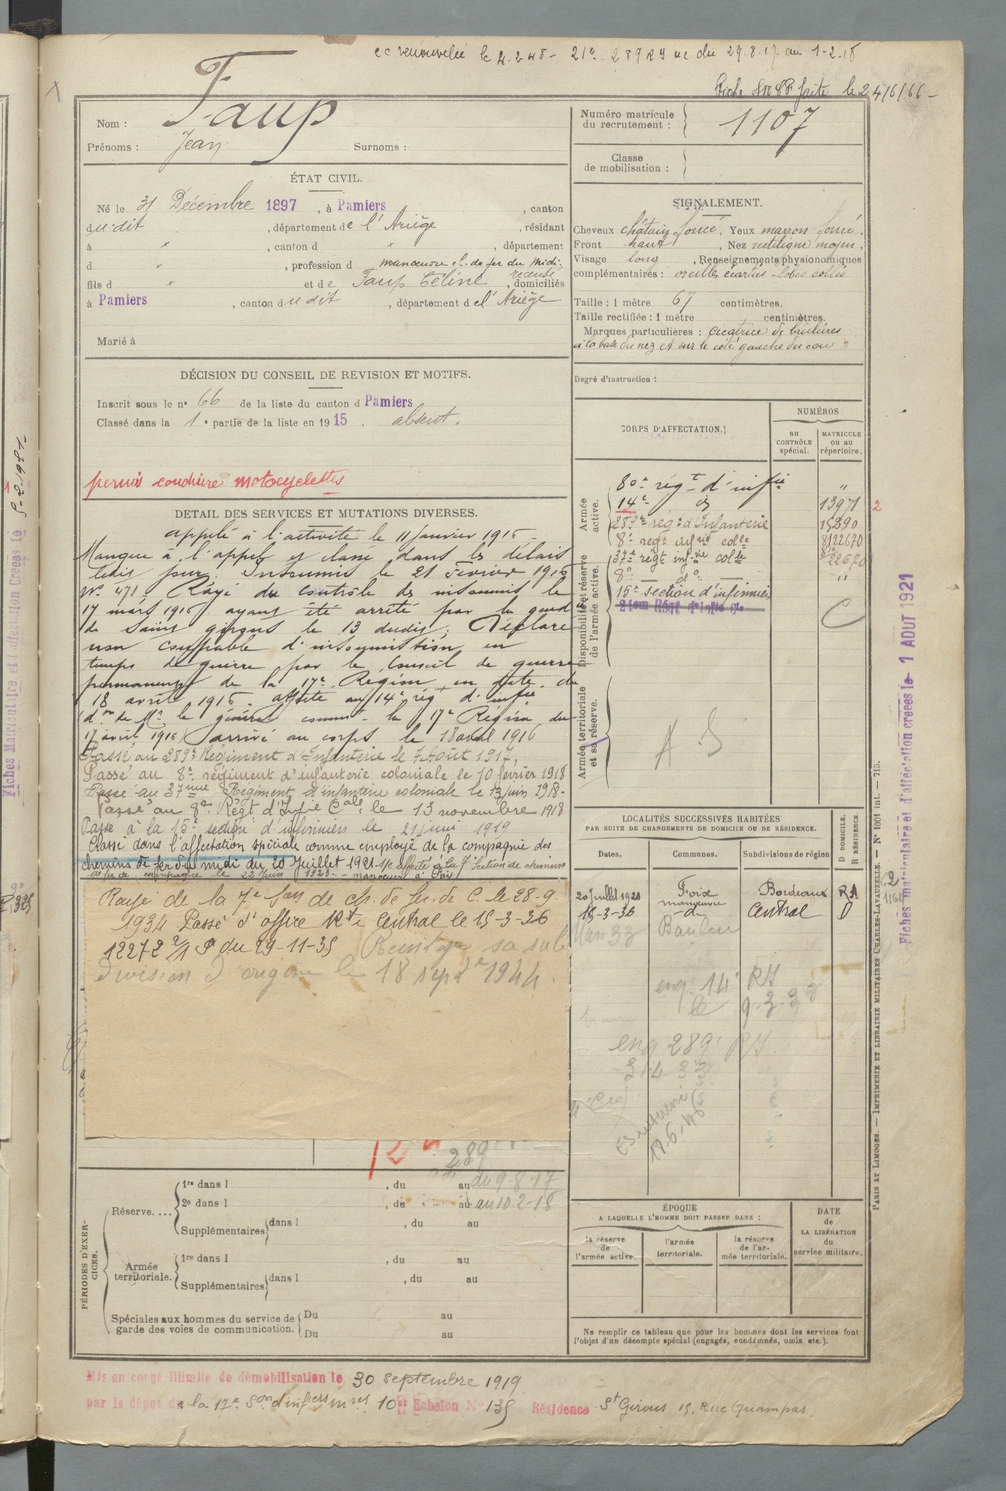 cc renouvelée le 2.2.48 - 21e 289 RI ue du 29.8.17 au 1-2-18
Fiche faite le 24/6/66 -
Nom : Faup
Prénoms : Jean Surnoms :
Numéro matricule du recrutement : 1107
Classe de mobilisation :
ÉTAT CIVIL.
Né le 31 Décembre 1897, à Pamiers, canton
dudit, département de l'Ariège, résidant
à ", canton d ", département
d ", profession d manœuvre ch. de fer du Midi
fils d " et de Faup Céline, domiciliés
recensé
à Pamiers, canton dudit, département de l'Ariège
Marié à
SIGNALEMENT.
Cheveux châtain foncé, Yeux marron foncé,
Front haut, Nez rectiligne moyen,
Visage long, Renseignements physionomiques
complémentaires : oreilles écartées - lobes collés
Taille : 1 mètre 67 centimètres.
Taille rectifiée : 1 mètre centimètres.
Marques particulières : cicatrice de brûlures
à la base du nez et sur le côté gauche du cou
Degré d'instruction :
DÉCISION DU CONSEIL DE REVISION ET MOTIFS.
Inscrit sous le n° 66 de la liste du canton d Pamiers
Classé dans la 1e partie de la liste en 1915. absent.
permis conduire motocyclettes
DÉTAIL DES SERVICES ET MUTATIONS DIVERSES.
Appelé à l'activité le 11 janvier 1916
Manque à l'appel et classé dans les délais
dudit jour. Insoumis le 21 Février 1916
N° 471. Rayé du contrôle des insoumis le
17 mars 1916 ayant été arrêté par la gend
de Saint Girons le 13 dudit. Déclaré
non coupable d'insoumission en
temps de guerre par le Conseil de guerre
permanent de la 17e Région en date du
18 avril 1916. affecté au 14e rég d'infie
(don de Mr le général commt la 17e Région du
17 avril 1916) arrivé au corps le 18 avril 1916
Passé au 289e Régiment d'Infanterie le 7 Août 1917.
Passé au 8e régiment d'infanterie coloniale le 10 février 1918
Passé au 37ème Régiment d'infanterie coloniale le 13 juin 1918.
Passé au 8e Régt d'Infie Cale le 13 novembre 1918
Passé à la 15e section d'infirmiers le 21 juin 1919
Classé dans l'affectation spéciale comme employé de la compagnie des
chemins de fer du midi du 20 Juillet 1921.
Rayé de la 7e Son de ch. de fer de C. le 28-9
1934 Passé d'office Rt Central le 15-3-36
12272 2/1 du 29-11-35 Réintégré sa sub
division d'origine le 18 septe 1944.
CORPS D'AFFECTATION.
NUMÉROS
au CONTRÔLE spécial.
MATRICULE ou au répertoire.
Armée active.
80e régt d'infie "
14e d° 13971 2
289e régt d'Infanterie 15390
8e regt infie colle 8/22670
Disponibilité et réserve de l'armée active.
37e regt infie colle 22670
8e d° "
15e section d'infirmiers
C
Armée territoriale et sa réserve.
A.S
LOCALITÉS SUCCESSIVES HABITÉES
PAR SUITE DE CHANGEMENTS DE DOMICILE OU DE RÉSIDENCE.
Dates. Communes. Subdivisions de région D DOMICILE. R RÉSIDENCE.
20 juillet 1921 Foix Bordeaux RA
manœuvre
15-3-36 -d- Central D
eng 14e RI
le 9.3.3
eng 289e RI
314 33
17-6-46
289
Réserve....
1re dans l , du au du 9-8-17
2e dans l , du au au 10-2-18
Supplémentaires dans l , du au
PÉRIODES D'EXERCICES.
Armée territoriale.
1re dans l , du au
Supplémentaires dans l , du au
Spéciales aux hommes du service de garde des voies de communication.
Du au
Du au
ÉPOQUE
A LAQUELLE L'HOMME DOIT PASSER DANS :
la réserve de l'armée active.
l'armée territoriale.
la réserve de l'armée territoriale.
DATE de LA LIBÉRATION du service militaire.
Ne remplir ce tableau que pour les hommes dont les services font
l'objet d'un décompte spécial (engagés, condamnés, omis, etc.).
Mis en congé illimité de démobilisation le 30 septembre 1919
par le dépôt de la 17e Son d'infiers mres 10e Echelon N° 135 Résidence St Girons 15, Rue Champas
Fiches matriculaire et d'affectation créées le 1 AOUT 1921
PARIS ET LIMOGES. — IMPRIMERIE ET LIBRAIRIE MILITAIRES CHARLES-LAVAUZELLE. — N° 1001 int. — 715.